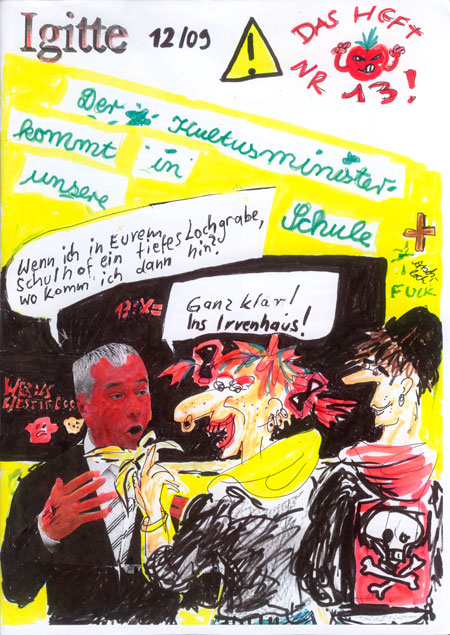 Igitte 12/09
DAS HEFT
NR 13!
Der Kultusminister-
kommt in
unsere
Schule +
Wenn ich in Eurem
Schulhof ein tiefes Loch grabe,
wo komm ich dann hin?
FUCK
B:X=
Ganz klar!
Ins Irrenhaus!